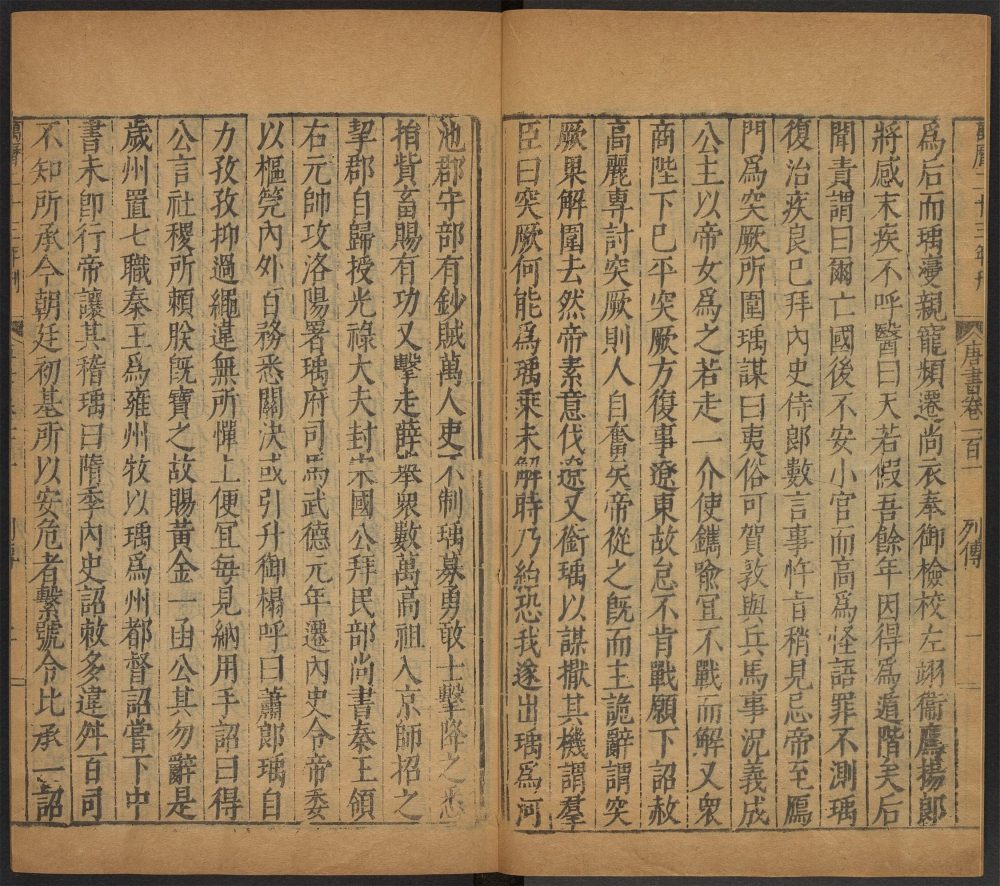 唐書卷一百一
列傳
一
爲后而瑀寖親寵頻遷尚衣奉御檢校左翊衞鷹揚郎
將感末疾不呼醫曰天若假吾餘年因得爲遁階矣后
聞責謂曰爾亡國後不安小官而高爲怪語罪不測瑀
復治疾良已拜內史侍郎數言事忤旨稍見忌帝至鴈
門爲突厥所圍瑀謀曰夷俗可賀敦與兵馬事況義成
公主以帝女爲之若走一介使鐫喻宜不戰而解又衆
商陛下已平突厥方復事遼東故怠不肯戰願下詔赦
高麗專討突厥則人自奮矣帝從之旣而主詭辭謂突
厥果解圍去然帝素意伐遼又銜瑀以謀撒其機謂羣
臣曰突厥何能爲瑀乘未解時乃紿恐我遂出瑀爲河
池郡守部有鈔賊萬人吏不制瑀募勇敢士擊降之悉
捐貲畜賜有功又擊走薛舉衆數萬高祖入京師招之
挈郡自歸授光祿大夫封宋國公拜民部尚書秦王領
右元帥攻洛陽署瑀府司馬武德元年遷內史令帝委
以樞筦內外百務悉關決或引升御榻呼曰蕭郎瑀自
力孜孜抑過繩違無所憚上便宜每見納用手詔曰得
公言社稷所賴朕旣寶之故賜黃金一函公其勿辭是
歲州置七職秦王爲雍州牧以瑀爲州都督詔嘗下中
書未卽行帝讓其稽瑀曰隋季內史詔敕多違舛百司
不知所承今朝廷初基所以安危者繫號令比承一詔